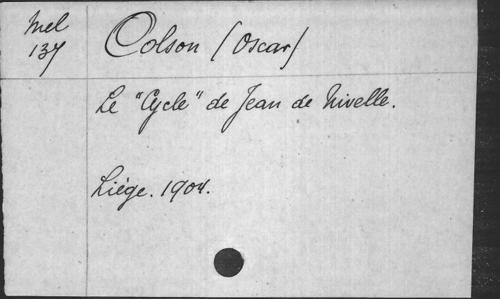 Mel
137
Colson (Oscar)
Le "Cycle" de Jean de Nivelle.
Liége. 1904.